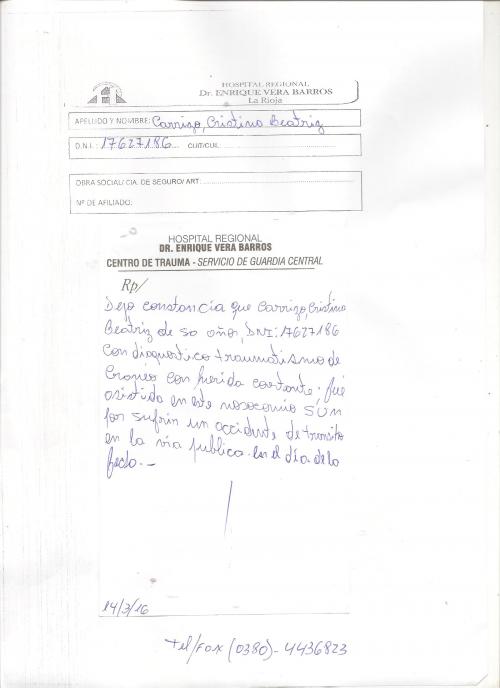 HOSPITAL REGIONAL
Dr. ENRIQUE VERA BARROS
La Rioja
APELLIDO Y NOMBRE: Carrizo, Cristina Beatriz
D.N.I.: 17627186 CUIT/CUIL:
OBRA SOCIAL/ CIA. DE SEGURO/ ART:
Nº DE AFILIADO:
HOSPITAL REGIONAL
DR. ENRIQUE VERA BARROS
CENTRO DE TRAUMA - SERVICIO DE GUARDIA CENTRAL
Rp/
Dejo constancia que Carrizo, Cristina
Beatriz de 50 años, DNI: 17627186
con diagnostico traumatismo de
Craneo con herida cortante; fue
asistida en este nosocomio
por sufrir un accidente de transito
en la via publica. en el día de la
fecha.-
14/3/16
Tel/Fax (0380)-4436823